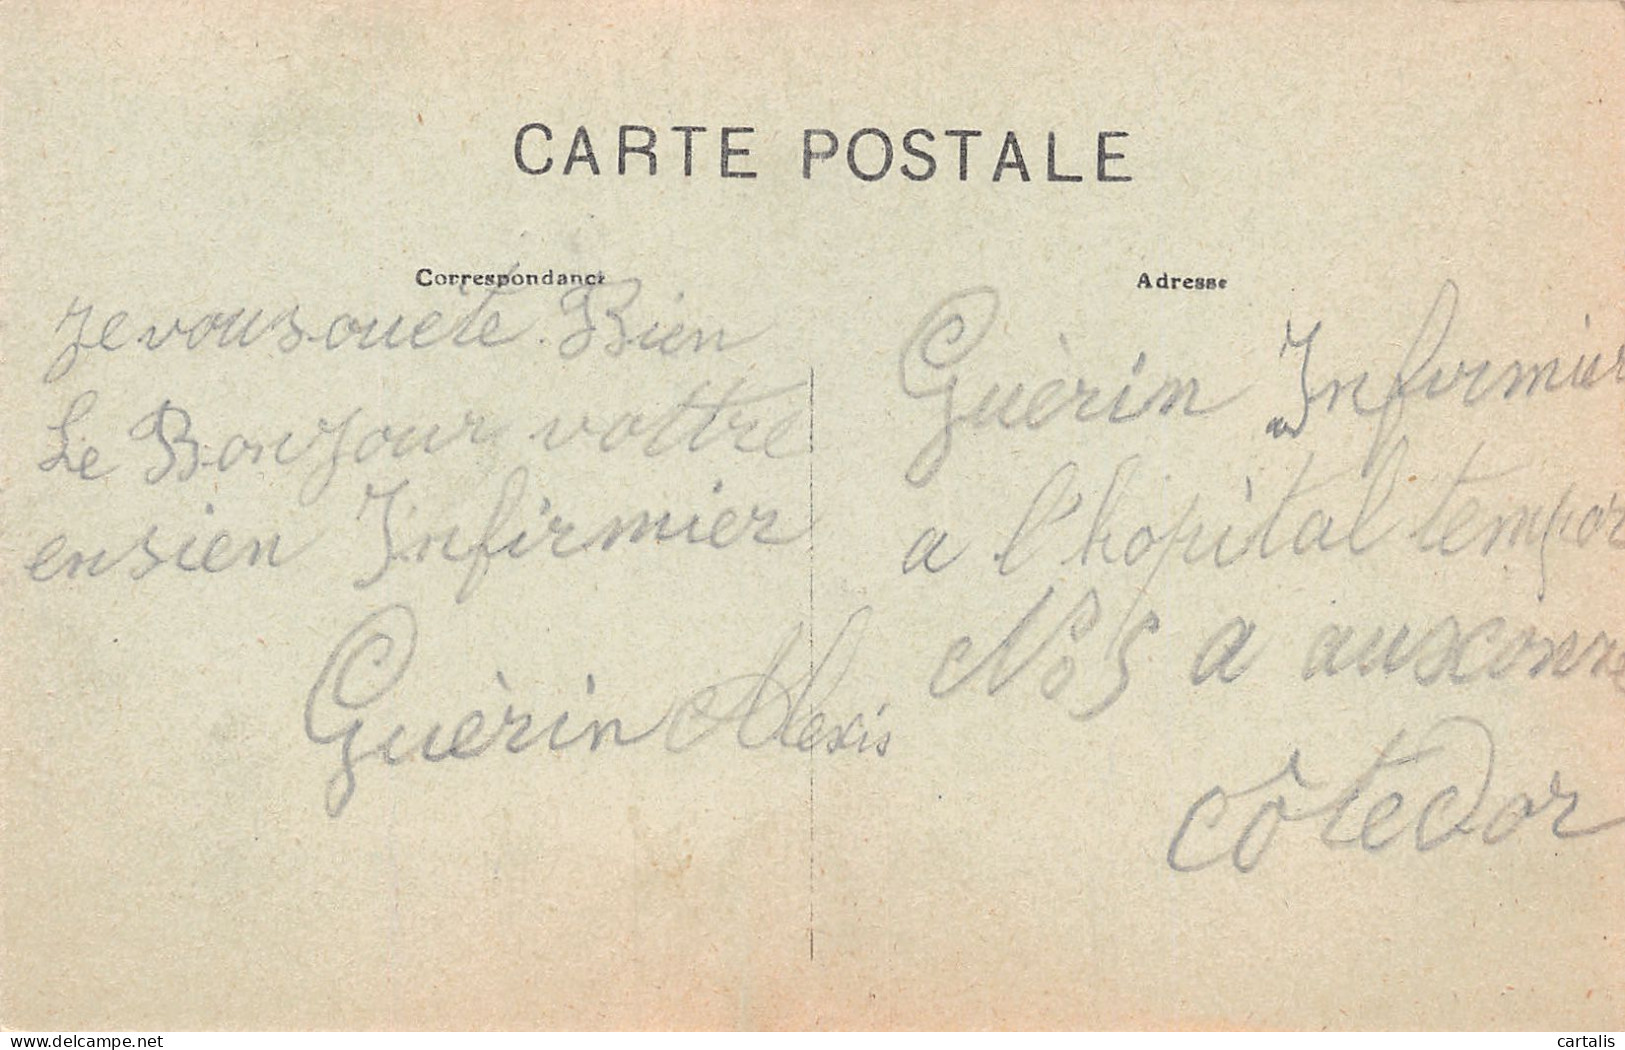 CARTE POSTALE
Correspondance
je vous souète Bien
Le Bonjour vottre
ensien Infirmier
Guèrin Alexis
Adresse
Guèrin Infirmier
a l'hopital tempor
No 5 a auxonne
côte dor
delcampe.net
cartalis